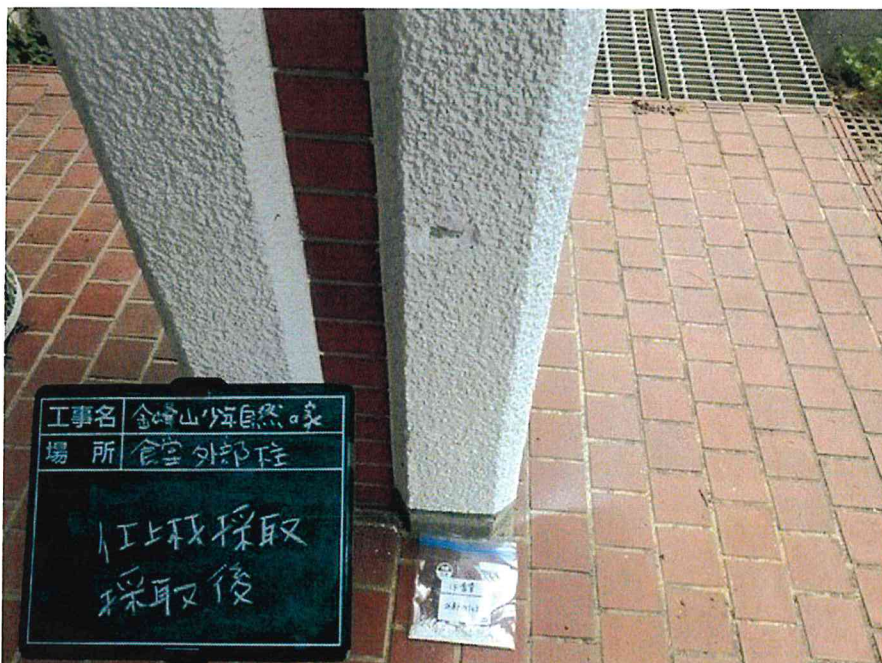 工事名 金峰山少年自然の家
場所 食堂外部柱
仕上材採取
採取後